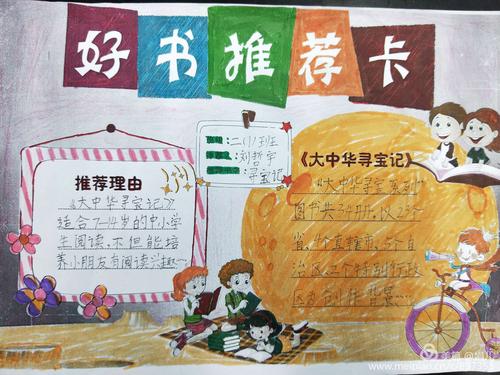 好书推荐卡
班级:二(1)班
刘哲宇
寻宝记
推荐理由
《大中华寻宝记》
适合7—14岁的中小学
生阅读,不但能培
养小朋友有阅读兴趣……
《大中华寻宝记》
《大中华寻宝系列》
图书共34册,以23个
省、4个直辖市、5个自
治区、2个特别行政
区为创作背景……
美篇
www.meipian